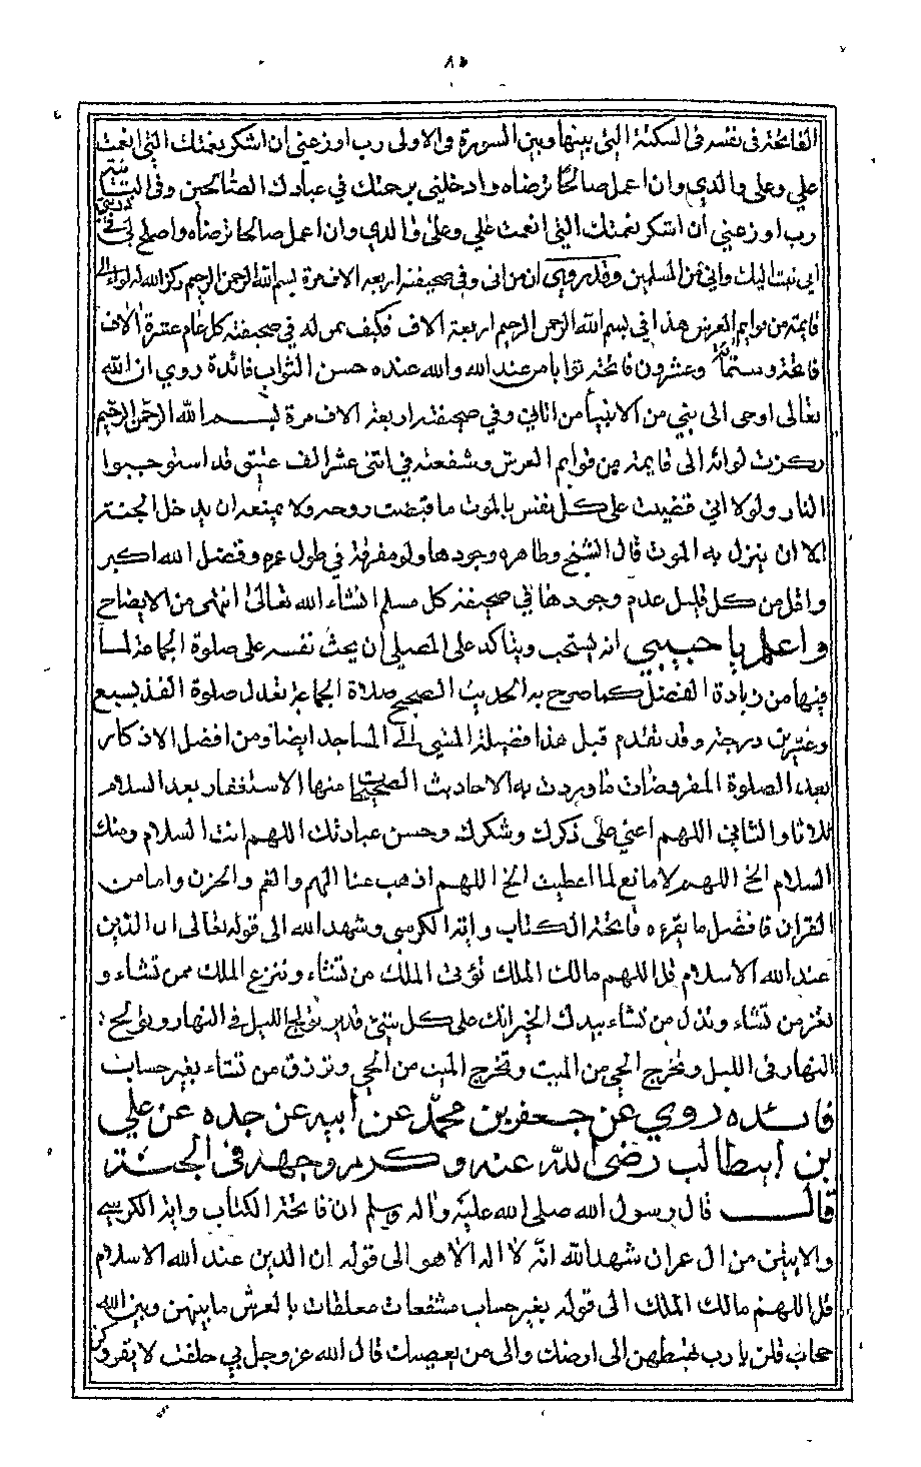 ٨٥
الفاتحة في نفسه في السكتة التي بينها وبين السورة في الاولى رب اوزعني ان اشكر نعمتك التي انعمت
علي وعلى والدي وان اعمل صالحا ترضاه وادخلني برحمتك في عبادك الصالحين وفي الثانية
رب اوزعني ان اشكر نعمتك التي انعمت علي وعلى والدي وان اعمل صالحا ترضاه واصلح لي في ذريتي
اني تبت اليك واني من المسلمين وقد روي ان من اتى وفي صحيفته اربعة الاف مرة بسم الله الرحمن الرحيم ركز الله له لواء الى
قايمة من قوايم العرش هذا في بسم الله الرحمن الرحيم اربعة الاف فكيف بمن له في صحيفته كل عام عشرة الاف
فاتحة وستمائة وعشرون فاتحة ثوابا من عند الله والله عنده حسن الثواب فائدة روي ان الله
تعالى اوحى الى نبي من الانبيا من اتاني وفي صحيفته اربعة الاف مرة بسم الله الرحمن الرحيم
ركزت لوائه الى قايمة من قوايم العرش وشفعته في اثنى عشر الف عتيق قد استوجبوا
النار ولولا اني قضيت على كل نفس بالموت ما قبضت روحه ولا يمنعه ان يدخل الجنة
الا ان ينزل به الموت قال الشيخ وظاهره وجودها ولو مفرقة في طول عمره وفضل الله اكبر
واقل من كل قليل عدم وجودها في صحيفة كل مسلم انشاء الله تعالى انتهى من الايضاح
واعلم يا حبيبي انه يستحب ويتاكد على المصلي ان يحث نفسه على صلوة الجماعة لما
فيها من زيادة الفضل كما صرح به الحديث الصحيح صلاة الجماعة تعدل صلوة الفذ بسبع
وعشرين درجة وقد تقدم قبل هذا فضيلة المشي الى المساجد ايضا ومن افضل الاذكار
بعد الصلوة المفروضات ما وردت به الاحاديث الصحيحة منها الاستغفار بعد السلام
ثلاثا والثاني اللهم اعني على ذكرك وشكرك وحسن عبادتك اللهم انت السلام ومنك
السلام الخ اللهم لا مانع لما اعطيت الخ اللهم اذهب عنا الهم والغم والحزن واما من
القران فافضل ما يقرءه فاتحة الكتاب واية الكرسي وشهد الله الى قوله تعالى ان الذين
عند الله الاسلام قل اللهم مالك الملك تؤتي الملك من تشاء وتنزع الملك ممن تشاء و
تعز من تشاء وتذل من تشاء بيدك الخير انك على كل شيء قدير تولج الليل في النهار وتولج
النهار في الليل وتخرج الحي من الميت وتخرج الميت من الحي وترزق من تشاء بغير حساب
فائده روي عن جعفر بن محمد عن ابيه عن جده عن علي
بن ابيطالب رضى الله عنه وكرم وجهه في الجنة
قال قال رسول الله صلى الله عليه واله وسلم ان فاتحة الكتاب واية الكرسي
والايتين من ال عمران شهد الله انه لا اله الا هو الى قوله ان الدين عند الله الاسلام
قل اللهم مالك الملك الى قوله بغير حساب مشفعات معلقات بالعرش ما بينهن وبين الله
حجاب قلن يا رب تهبطهن الى ارضك والى من يعصيك قال الله عز وجل بي حلفت لا يقروكن